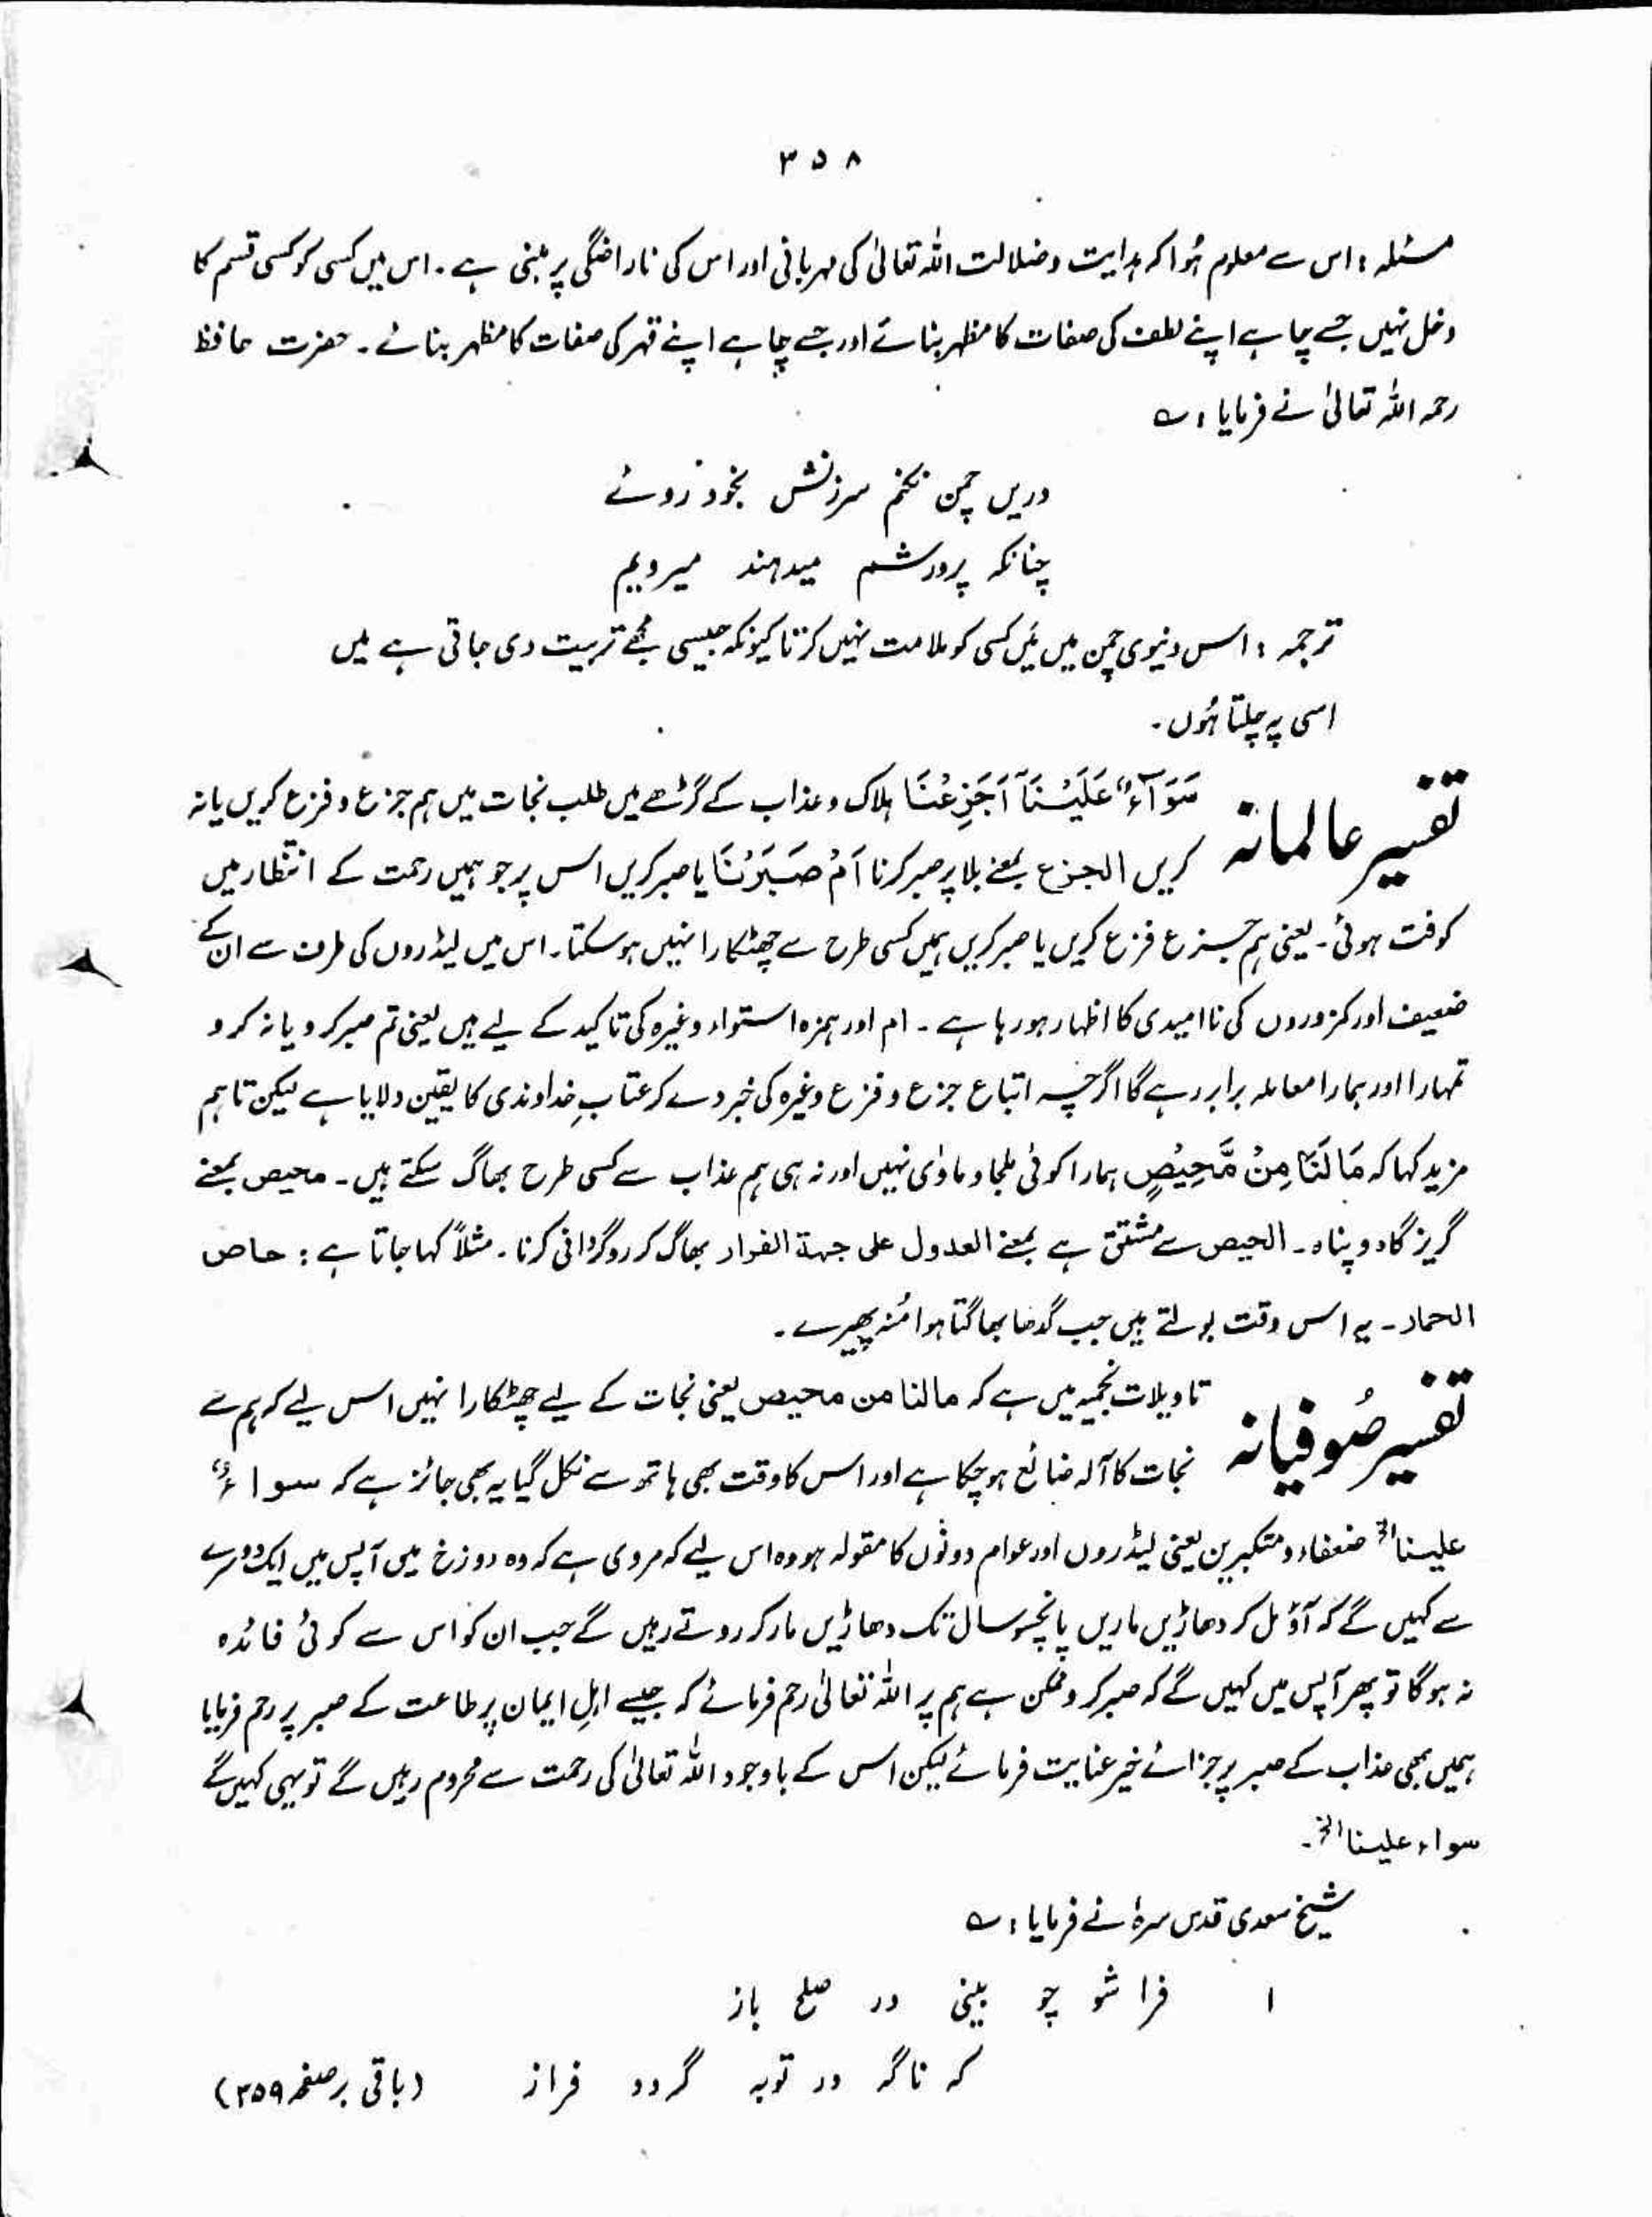 ۳۵۸
مسئلہ : اس سے معلوم ہُوا کہ ہدایت و ضلالت اللہ تعالیٰ کی مہربانی اور اس کی ناراضگی پر مبنی ہے ۔ اس میں کسی کو کسی قسم کا
دخل نہیں جسے چاہے اپنے لطف کی صفات کا مظہر بنائے اور جسے چاہے اپنے قہر کی صفات کا مظہر بنائے ۔ حضرت حافظ
رحمہ اللہ تعالیٰ نے فرمایا : ؎
دریں چمن نکنم سرزنش بخود روئے
چنانکہ پرورشم میدہند میرویم
ترجمہ : اس دنیوی چمن میں مَیں کسی کو ملامت نہیں کرتا کیونکہ جیسی مجھے تربیت دی جاتی ہے میں
اسی پہ چلتا ہُوں ۔
تفسیر عالمانہ سَوَآءٌ عَلَیْنَآ اَجَزِعْنَا ہلاک و عذاب کے گڑھے میں طلب نجات میں ہم جزع و فزع کریں یا نہ
کریں الجزع بمعنے بلا پر صبر کرنا اَمْ صَبَرْنَا یا صبر کریں اس پر جو ہمیں رحمت کے انتظار میں
کوفت ہوئی ۔ یعنی ہم جزع فزع کریں یا صبر کریں ہمیں کسی طرح سے چھٹکارا نہیں ہو سکتا ۔ اس میں لیڈروں کی طرف سے ان کے
ضعیف اور کمزوروں کی ناامیدی کا اظہار ہو رہا ہے ۔ ام اور ہمزہ استواء وغیرہ کی تاکید کے لیے ہیں یعنی تم صبر کرو یا نہ کرو
تمہارا اور ہمارا معاملہ برابر رہے گا اگرچہ اتباع جزع و فزع وغیرہ کی خبر دے کر عتابِ خداوندی کا یقین دلایا ہے لیکن تاہم
مزید کہا کہ مَا لَنَا مِنْ مَّحِیْصٍ ہمارا کوئی ملجا و ماوٰی نہیں اور نہ ہی ہم عذاب سے کسی طرح بھاگ سکتے ہیں ۔ محیص بمعنے
گریز گاہ و پناہ ۔ الحیص سے مشتق ہے بمعنے العدول علی جہۃ الفرار بھاگ کر روگردانی کرنا ۔ مثلاً کہا جاتا ہے : حاص
الحمار ۔ یہ اس وقت بولتے ہیں جب گدھا بھاگتا ہوا مُنہ پھیرے ۔
تفسیر صُوفیانہ تاویلات نجمیہ میں ہے کہ مالنا من محیص یعنی نجات کے لیے چھٹکارا نہیں اس لیے کہ ہم سے
نجات کا آلہ ضائع ہو چکا ہے اور اس کا وقت بھی ہاتھ سے نکل گیا یہ بھی جائز ہے کہ سواءٌ
علینا الخ ضعفاء و متکبرین یعنی لیڈروں اور عوام دونوں کا مقولہ ہو وہ اس لیے کہ مروی ہے کہ وہ دوزخ میں آپس میں ایک دوسرے
سے کہیں گے کہ آؤ مل کر دھاڑیں ماریں پانچسو سال تک دھاڑیں مار کر روتے رہیں گے جب ان کو اس سے کوئی فائدہ
نہ ہو گا تو پھر آپس میں کہیں گے کہ صبر کرو ممکن ہے ہم پر اللہ تعالیٰ رحم فرمائے کہ جیسے اہلِ ایمان پر طاعت کے صبر پر رحم فرمایا
ہمیں بھی عذاب کے صبر پر جزائے خیر عنایت فرمائے لیکن اس کے باوجود اللہ تعالیٰ کی رحمت سے محروم رہیں گے تو یہی کہیں گے
سواء علینا الخ ۔
شیخ سعدی قدس سرہٗ نے فرمایا : ؎
۱ فرا شو چو بینی در صلح باز
کہ ناگہ در توبہ گردد فراز (باقی بر صفحہ ۳۵۹)